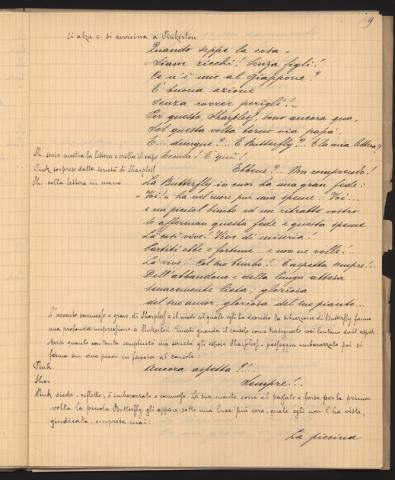 9
si alza e si avvicina a Pinkerton
Quando seppe la cosa -
- Siam ricchi! Senza figli!
Ce n'è uno al Giappone?
E' buona azione
Senza correr perigli! -
Per questo Sharpless, sono ancora qua,
Sol questa volta torno via papà.
E... dunque?... E Butterfly?... E la mia lettera?
Sh. serio mostra la lettera e crolla il capo
bimbo! E' qui!
Pink. sorpreso dalla serietà di Sharpless
Ebbene?... Non comprendo!
Sh. colla lettera in mano
La Butterfly in cuor ha una gran fede:
Voi la ha nel cuore pur una speme: Voi...
e un piccol bimbo ed un ritratto vostro
le afferman questa fede e questa speme
Là così vive! Vive di miseria!
Partiti ebbe e fortune... e non ne volle!...
Là vive! Col suo bimbo!... E aspetta sempre!...
Dell'abbandono e della lunga attesa
tenacemente lieta, gloriosa
del suo amor, gloriosa del suo pianto...
L'accento commosso e grave di Sharpless e il modo col quale egli ha descritto la situazione di Butterfly fanno
una profonda impressione a Pinkerton. Questi guarda il console come trasognato così lontano dall'aspet-
tarsi quanto con tanta semplicità ma serietà gli espose Sharpless - passeggia imbarazzato poi si
ferma su due piedi in faccia al console:
Pink.
Ancora aspetta?!..
Shar.
Sempre!..
Pink. siede - riflette, è imbarazzato e commosso. La sua mente corre al passato e forse per la prima
volta la piccola Butterfly gli appare sotto una luce più vera, quale egli non l'ha vista,
giudicata, compresa mai:
La piccina